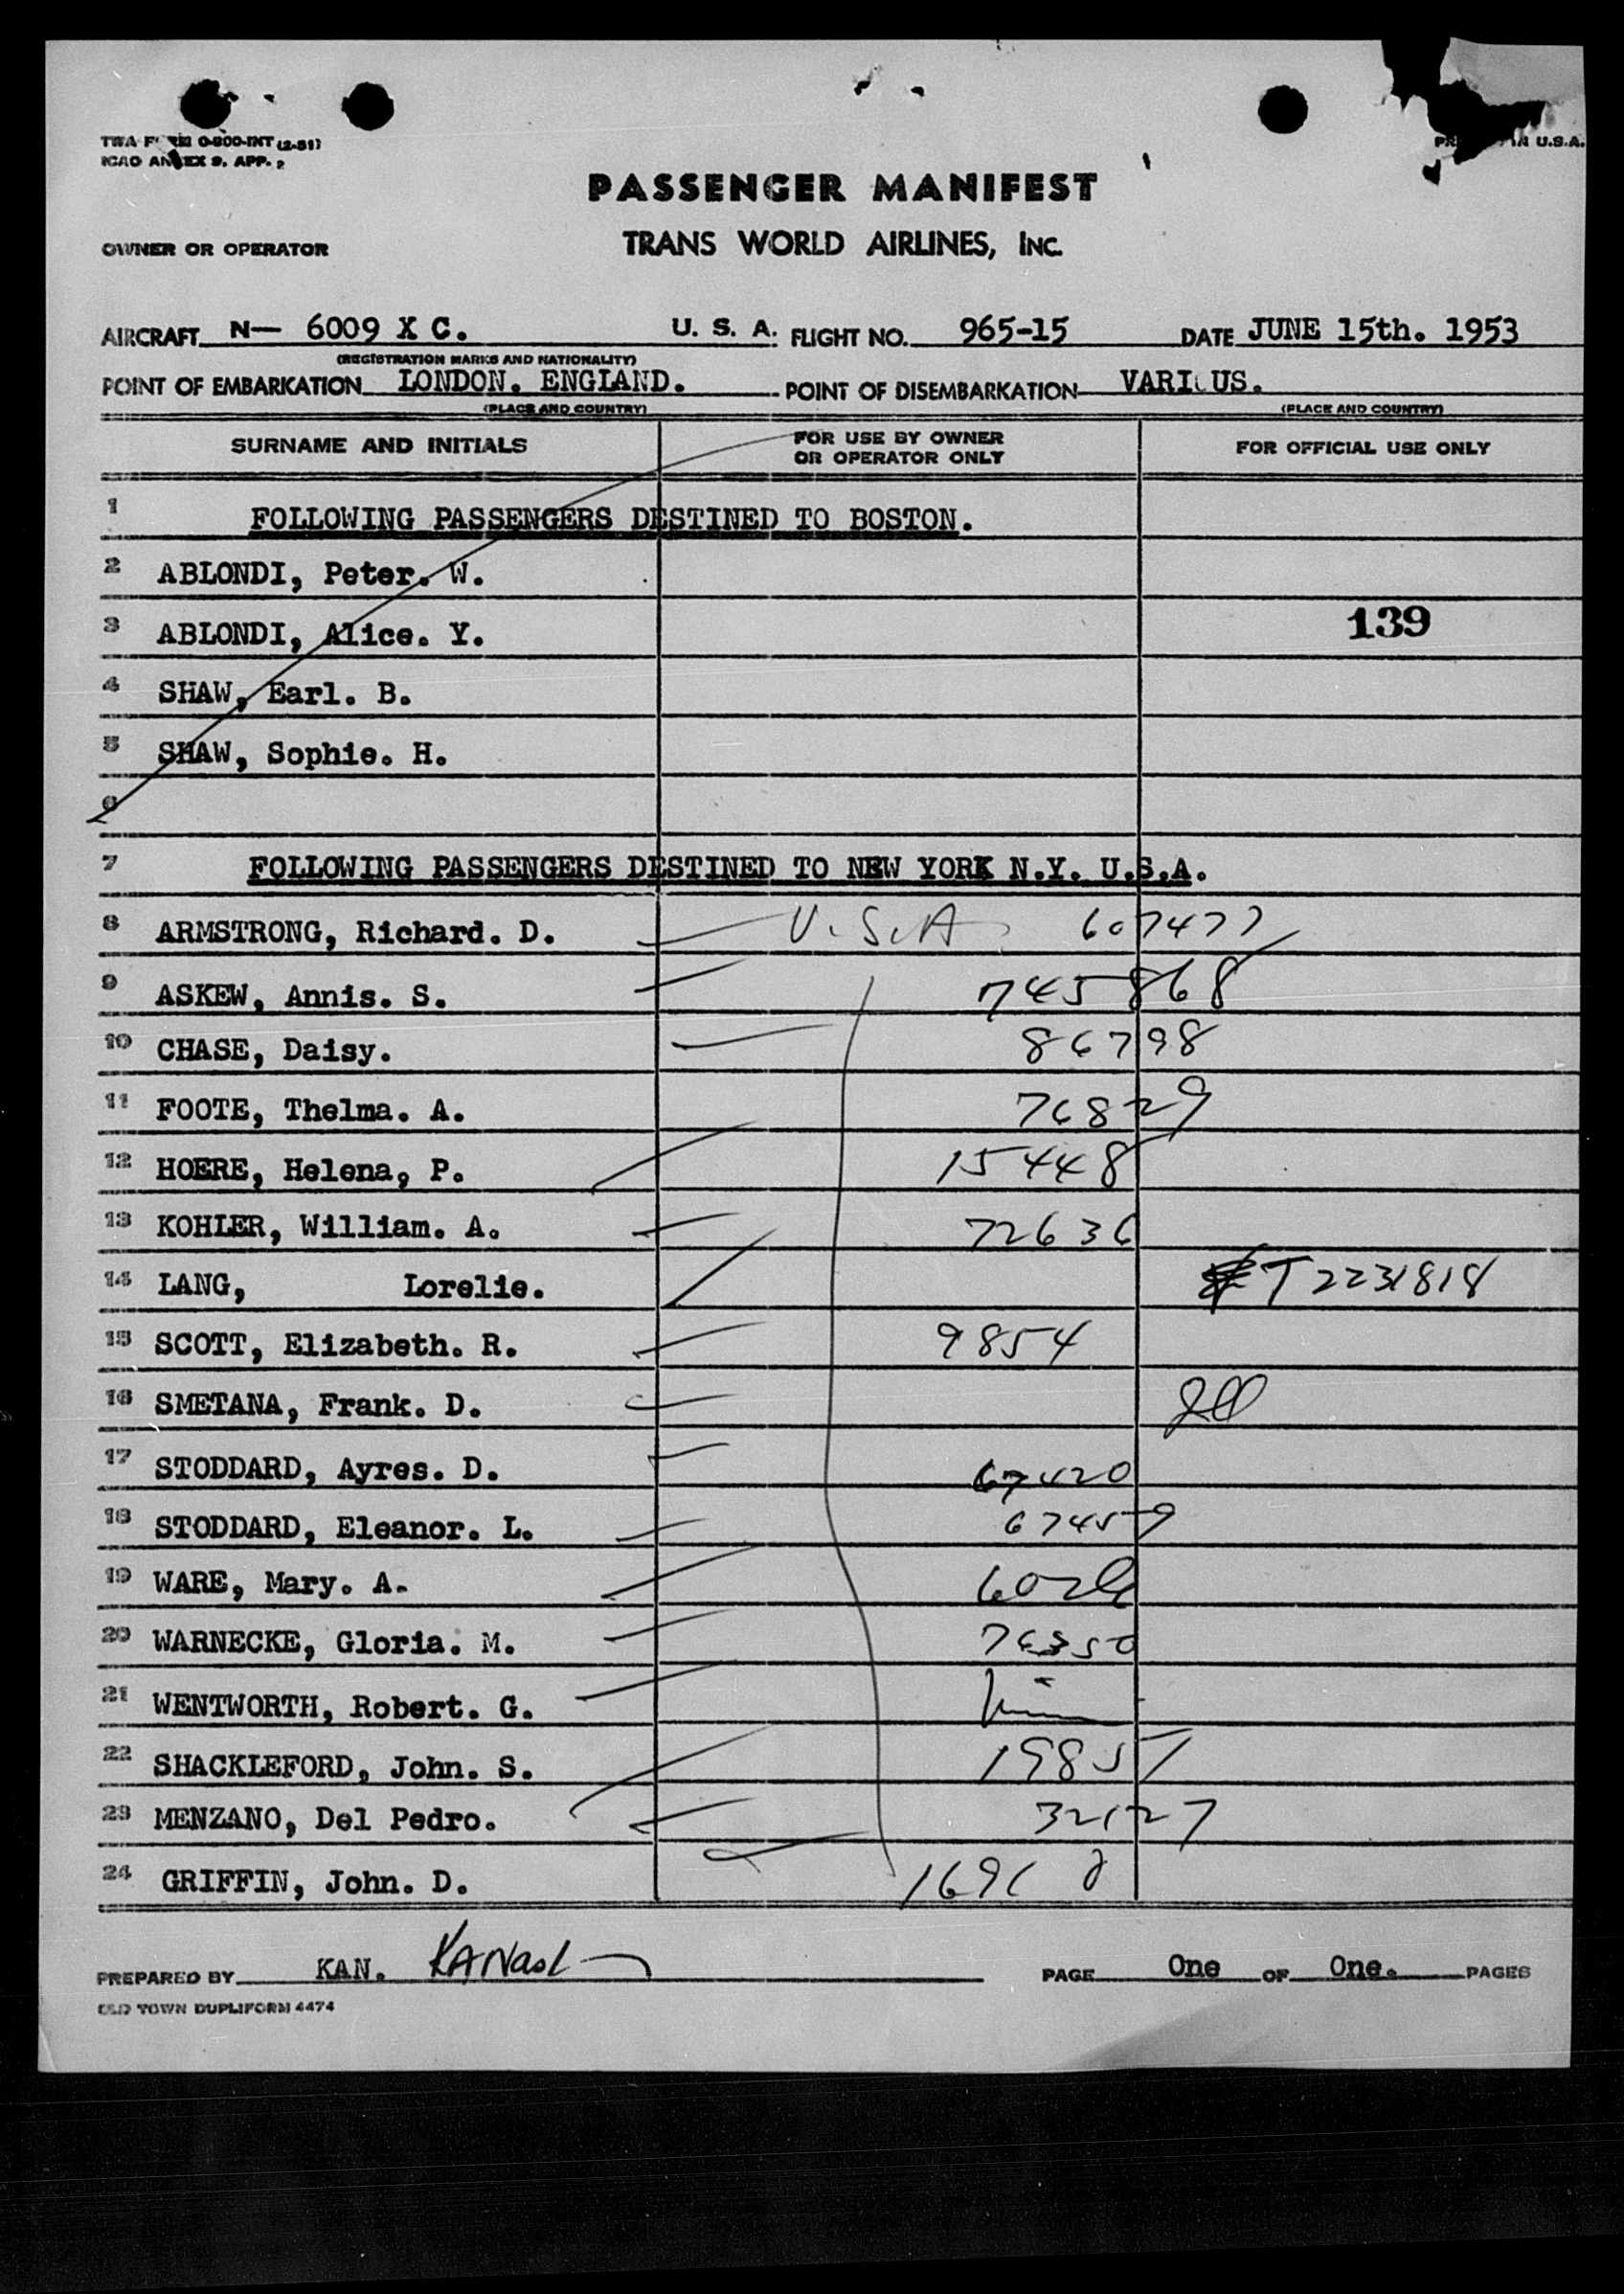 TWA FORM 0-800-INT (2-51)
ICAO ANNEX 9. APP. 2
IN U.S.A.
PASSENGER MANIFEST
OWNER OR OPERATOR
TRANS WORLD AIRLINES, INC.
AIRCRAFT N— 6009 X C. U. S. A. FLIGHT NO. 965-15 DATE JUNE 15th. 1953
(REGISTRATION MARKS AND NATIONALITY)
POINT OF EMBARKATION LONDON. ENGLAND. POINT OF DISEMBARKATION VARI US.
(PLACE AND COUNTRY) (PLACE AND COUNTRY)
SURNAME AND INITIALS FOR USE BY OWNER OR OPERATOR ONLY FOR OFFICIAL USE ONLY
1 FOLLOWING PASSENGERS DESTINED TO BOSTON.
2 ABLONDI, Peter. W.
3 ABLONDI, Alice. Y. 139
4 SHAW, Earl. B.
5 SHAW, Sophie. H.
6
7 FOLLOWING PASSENGERS DESTINED TO NEW YORK N.Y. U.S.A.
8 ARMSTRONG, Richard. D. U.S.A. 607477
9 ASKEW, Annis. S. 745868
10 CHASE, Daisy. 86798
11 FOOTE, Thelma. A. 76829
12 HOERE, Helena, P. 15448
13 KOHLER, William. A. 72636
14 LANG, Lorelie. T2231818
15 SCOTT, Elizabeth. R. 9854
16 SMETANA, Frank. D.
17 STODDARD, Ayres. D. 67420
18 STODDARD, Eleanor. L. 67459
19 WARE, Mary. A.
20 WARNECKE, Gloria. M. 76350
21 WENTWORTH, Robert. G.
22 SHACKLEFORD, John. S. 19857
23 MENZANO, Del Pedro. 32127
24 GRIFFIN, John. D.
PREPARED BY KAN. KANash PAGE One OF One. PAGES
OLD TOWN DUPLIFORM 4474